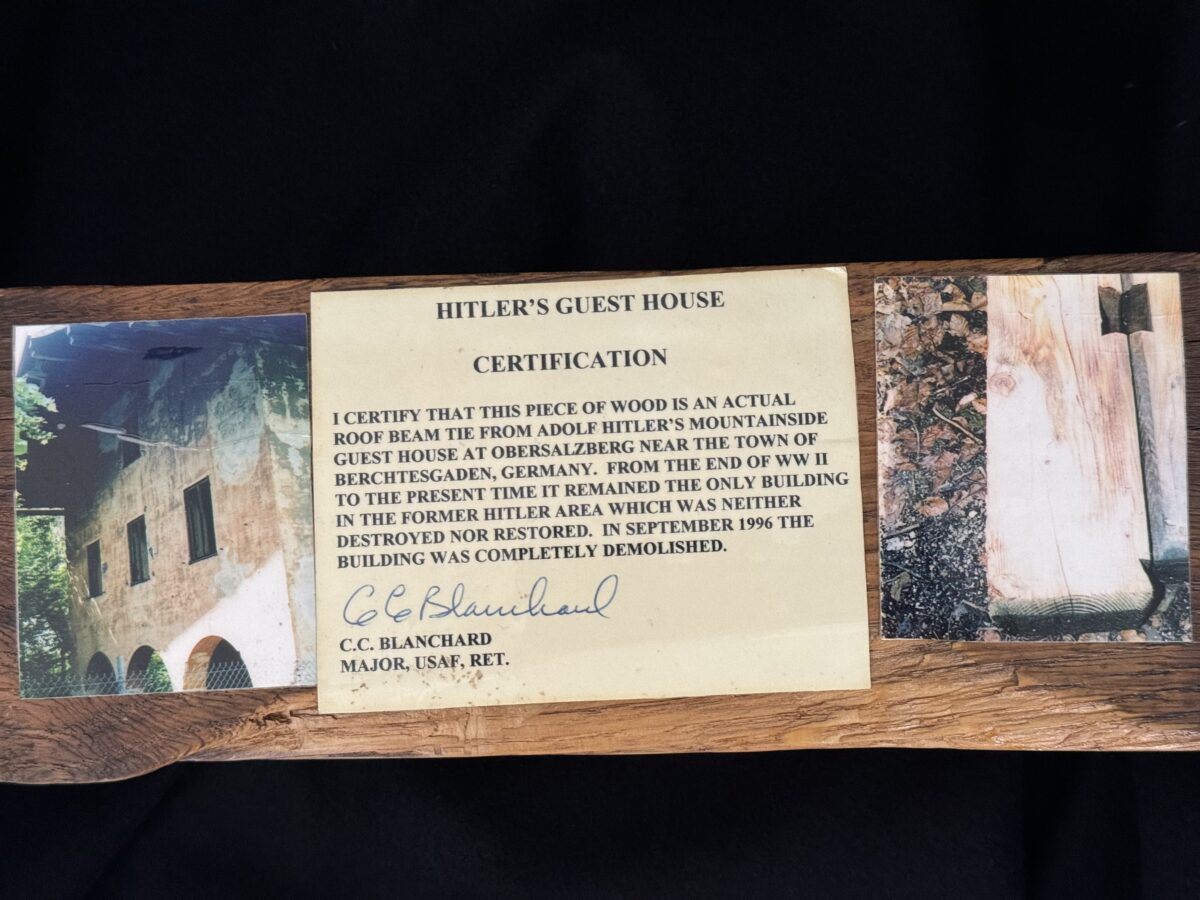 HITLER'S GUEST HOUSE
CERTIFICATION
I CERTIFY THAT THIS PIECE OF WOOD IS AN ACTUAL
ROOF BEAM TIE FROM ADOLF HITLER'S MOUNTAINSIDE
GUEST HOUSE AT OBERSALZBERG NEAR THE TOWN OF
BERCHTESGADEN, GERMANY. FROM THE END OF WW II
TO THE PRESENT TIME IT REMAINED THE ONLY BUILDING
IN THE FORMER HITLER AREA WHICH WAS NEITHER
DESTROYED NOR RESTORED. IN SEPTEMBER 1996 THE
BUILDING WAS COMPLETELY DEMOLISHED.
CC Blanchard
C.C. BLANCHARD
MAJOR, USAF, RET.